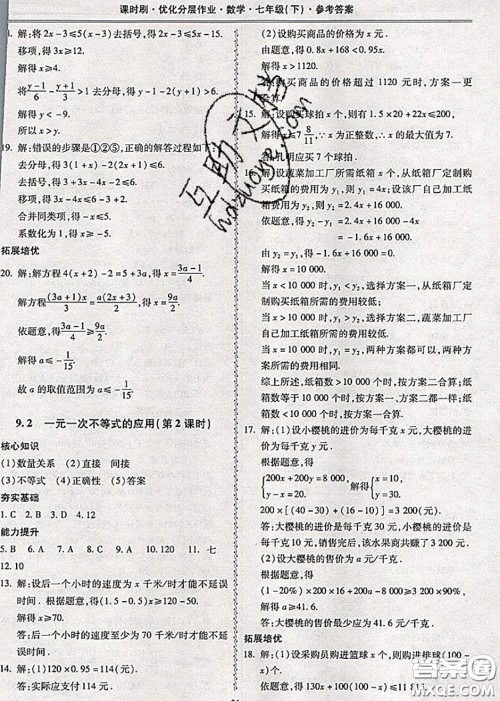 课时刷·优化分层作业·数学·七年级(下)·参考答案
解:将3x-2≤1去分母,得3x-2≤5.
移项,得3x≥12.
解得x≥4.
将(y-1)/6-(y-1)/3>1去分母,得y-1-2y-2>6.
解得y<-9.
所以x>y.
19. 解:错误的步骤是①②⑤,正确的解答过程如下:
去分母,得3(1+x)-2(2x+1)≤6.
去括号,得3+3x-4x-2≤6.
移项,得3x-4x≤6-3+2.
合并同类项,得-x≤5.
系数化为1,得x≥-5.
拓展培优
20. 解:解方程4(x+2)-2=5+3a,得x=(3a-1)/4.
解方程(3a+1)x/3=a(2x+3)/2,得x=9a/2.
依题意,得(3a-1)/4≥9a/2.
解得a≤-1/15.
故a的取值范围为a≤-1/15.
9.2 一元一次不等式的应用(第2课时)
核心知识
(1)数量关系 (2)直接 间接
(3)不等式 (4)正确性 (5)答案
夯实基础
1. C 2. B 3. D 4. 12
能力提升
5. B 6. A 7. A 8. C 9. A 10. 120 11. 七
12. 10
13. 解:设后一个小时的速度为x千米/时才能不延误
时间.根据题意,得(1.5-0.5)x≥1.6.
解得x≥1.6.
答:后一个小时的速度至少为1.6千米/时才能不延
误时间.
14. 解:(1)120×0.95=114(元).
答:实际应支付114元.
(2)设购买商品的价格为x元.
由题意,得0.8x+168<0.95x.
解得x>1120.
购买商品的价格超过1120元时,方案一更
合算.
15. 解:设购买球拍x个,则有1.5×20+22x≤200,
解得x≤7 8/11,∵x为正整数,∴x的最大值为7.
答:孔明应买7个球拍.
16. 解:设蔬菜加工厂所需纸箱x个,从纸箱厂定制购
买纸箱的费用为y₁元,则y₁=4x;设该自己加工纸
箱的费用为y₂元,则y₂=2.4x+16 000.
由题意,得y₂-y₁=2.4x+16 000-4x.
令y₂=y₁,则2.4x+16 000-4x=0.
解得x=10 000.
当x<10 000时,y₁<y₂,选择方案一,从纸箱厂定
制购买纸箱所需的费用较低;
当x>10 000时,y₁>y₂,选择方案二,蔬菜加工厂
自己加工纸箱所需的费用较低;
当x=10 000时,y₁=y₂,两种方案都可以,两种方
案所需的费用相同.
综上所述,纸箱数<10 000个时,按方案一合算;
纸箱数>10 000个时,按方案二合算;
纸箱数=10 000个时,按方案一、方案二都一样.
17. 解:(1)设小樱桃的进价为每千克x元,大樱桃的进
价为每千克y元.
根据题意,得
{200x+200y=8 000, y-x=20. 解得{x=10, y=30.
200×[(40-30)+(16-10)]=3 200(元).
答:大樱桃的进价是每千克30元,小樱桃的进价是
每千克10元,销售完后,该水果商共赚了3 200元.
(2)设大樱桃的售价为a元/千克.
根据题意,得
(1-20%)×200×16+200a-8 000≥3 200×90%.
解得a≥41.6.
答:大樱桃的售价最少应为41.6元/千克.
拓展培优
18. 解:(1)设采购员购进篮球x个,则购进排球(100-
x)个.
依题意,得130x+100(100-x)≤11
互助文档
hdzuoye.com
答案圈
MXQE.COM